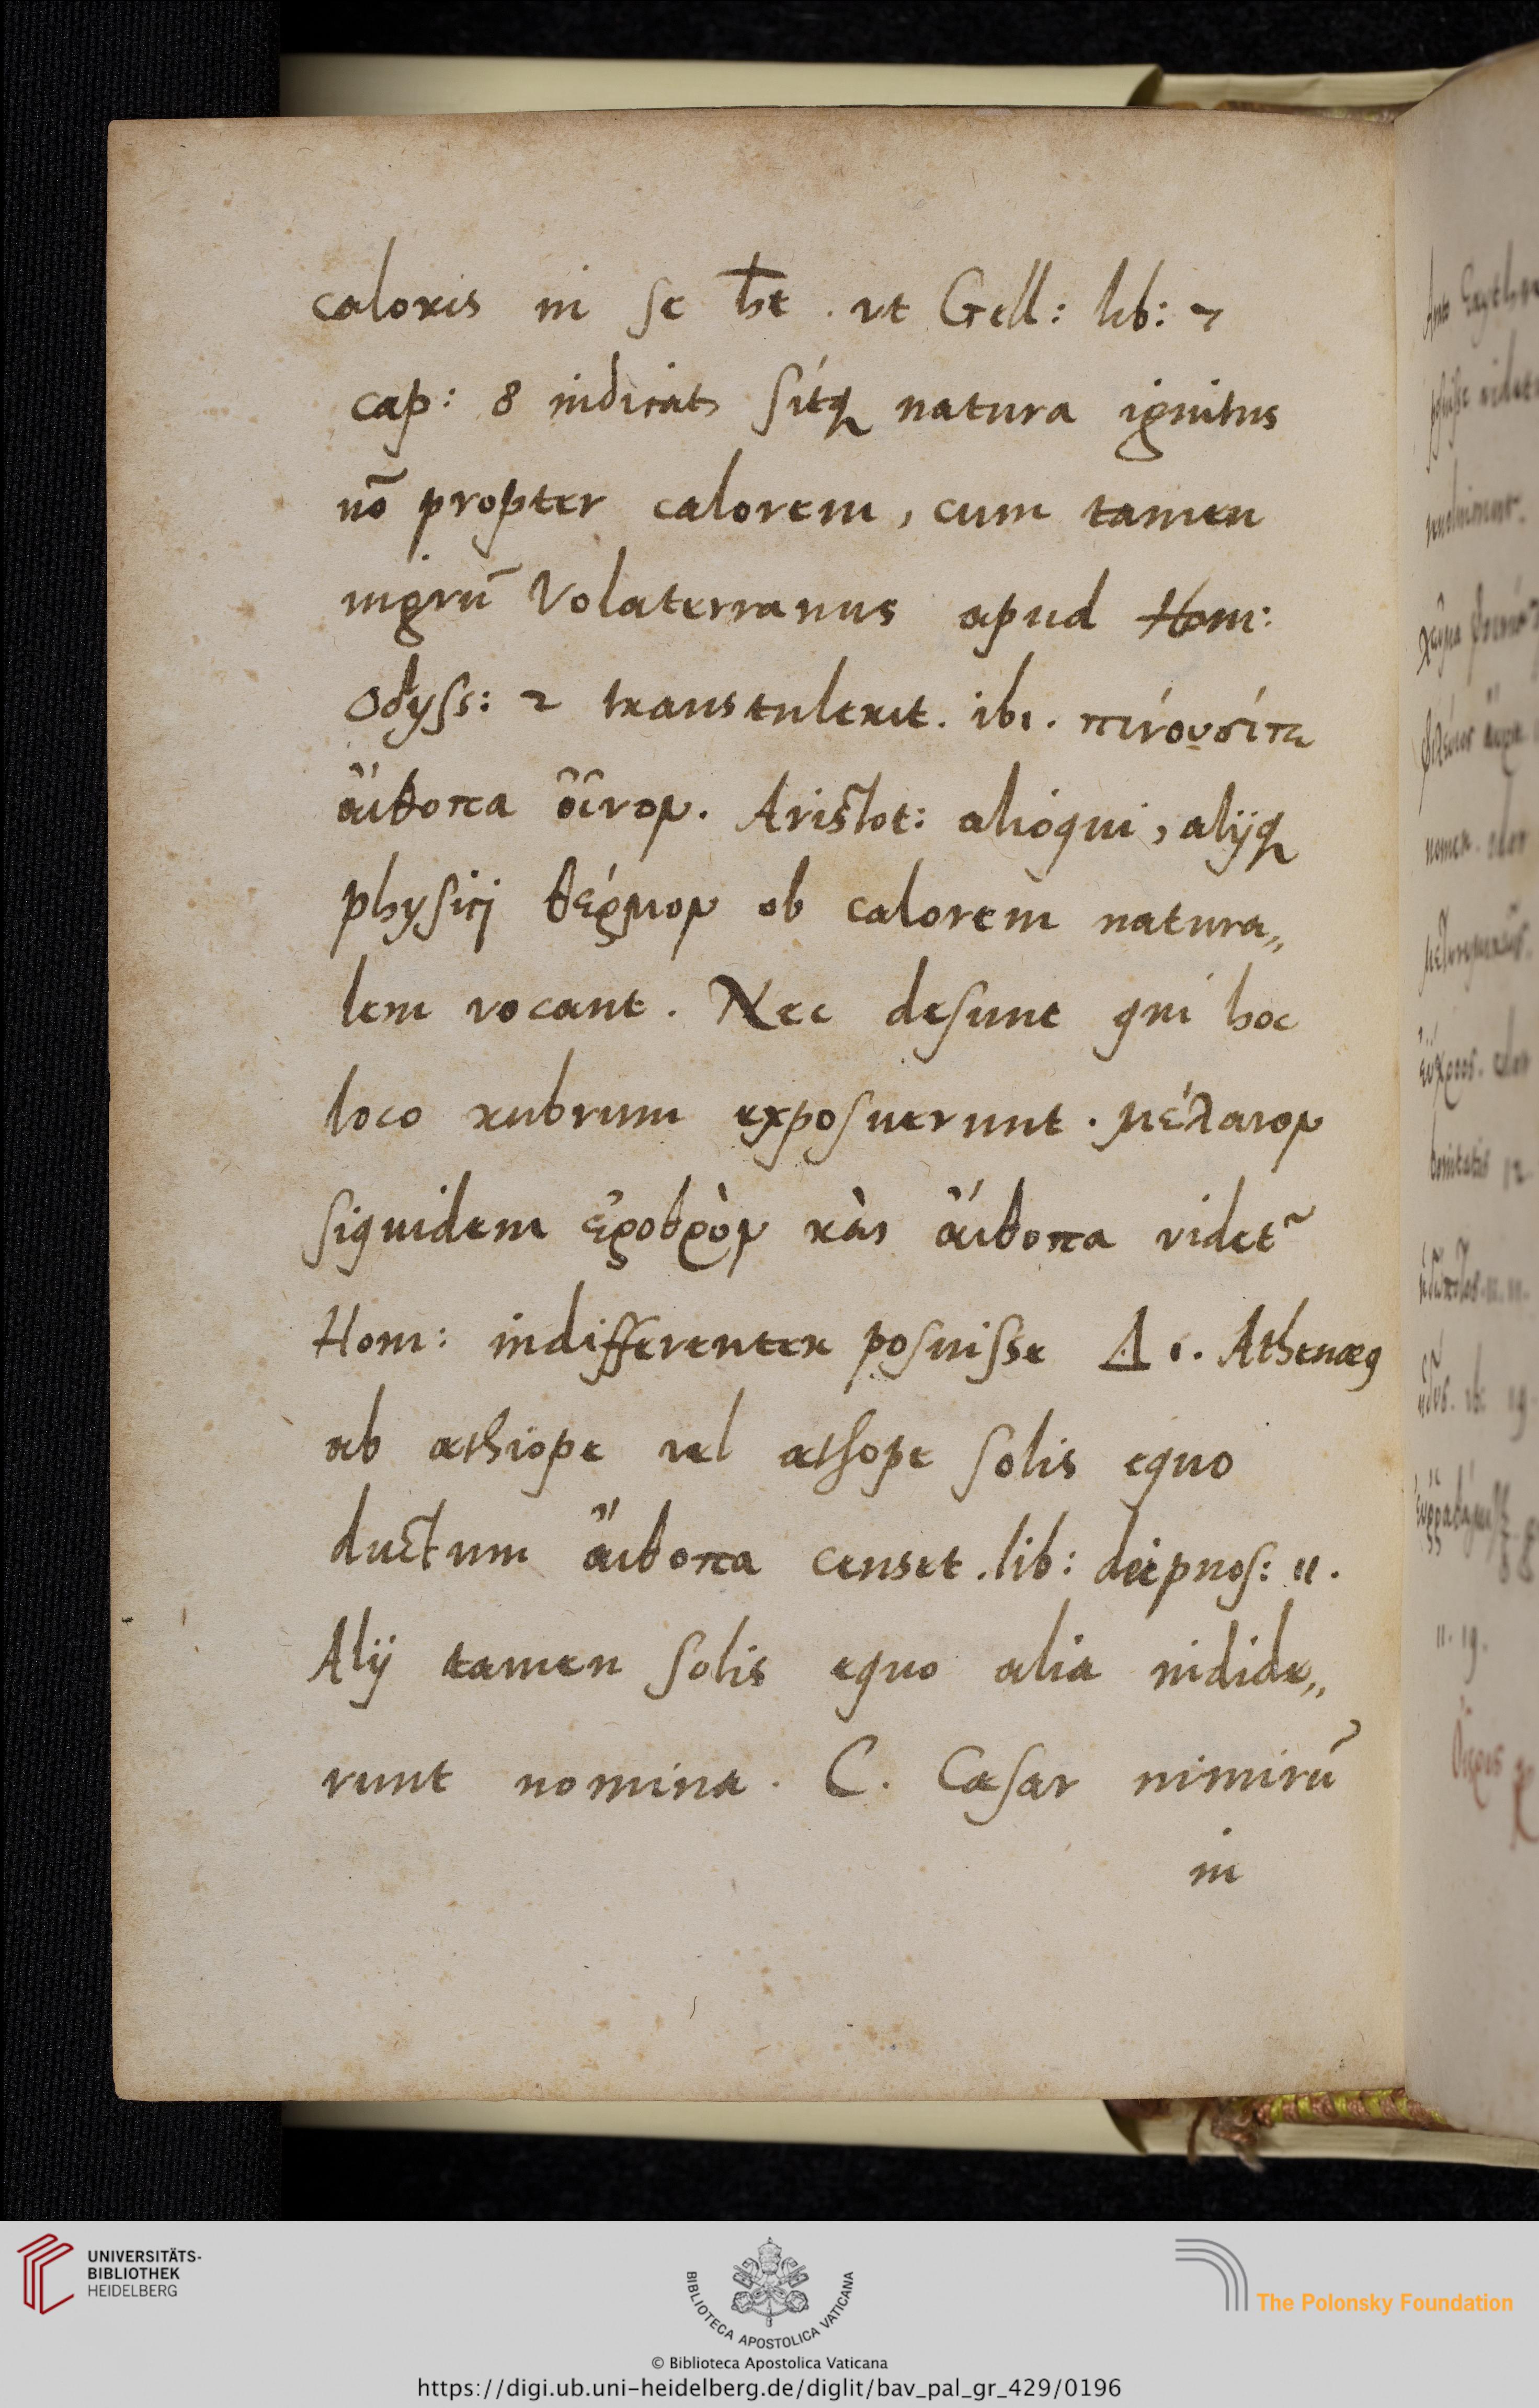 caloris in se h̄t . ut Gell: lib: 7
cap: 8 indicat, sitq natura ignitus
nō propter calorem, cum tamen
nigrū Volaterranus apud Hom:
Odyss: 2 transtulerit. ibi. πίνουσί τε
αἴθοπα οἶνον. Aristot: alioqui, alijq
physicj θέρμον ob calorem natura„
lem vocant. Nec desunt qui hoc
loco rubrum exposuerunt. μέλανον
siquidem ἐροθρὸν καὶ αἴθοπα videt~
Hom: indifferenter posuisse Δ ε. Athenæ9
ab æthiope vel æthope solis equo
ductum αἴθοπα censet. lib: deipnos: 11.
Alij tamen solis equo alia indide„
runt nomina. C. Cæsar nimirū
in
UNIVERSITÄTS-
BIBLIOTHEK
HEIDELBERG
BIBLIOTECA APOSTOLICA VATICANA
The Polonsky Foundation
© Biblioteca Apostolica Vaticana
https://digi.ub.uni-heidelberg.de/diglit/bav_pal_gr_429/0196